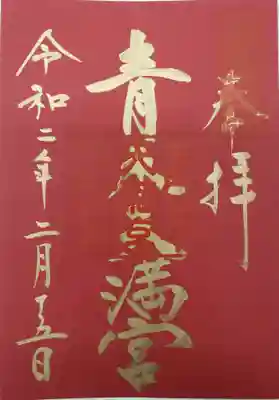 奉拝
青 満宮
令和二年二月 五日